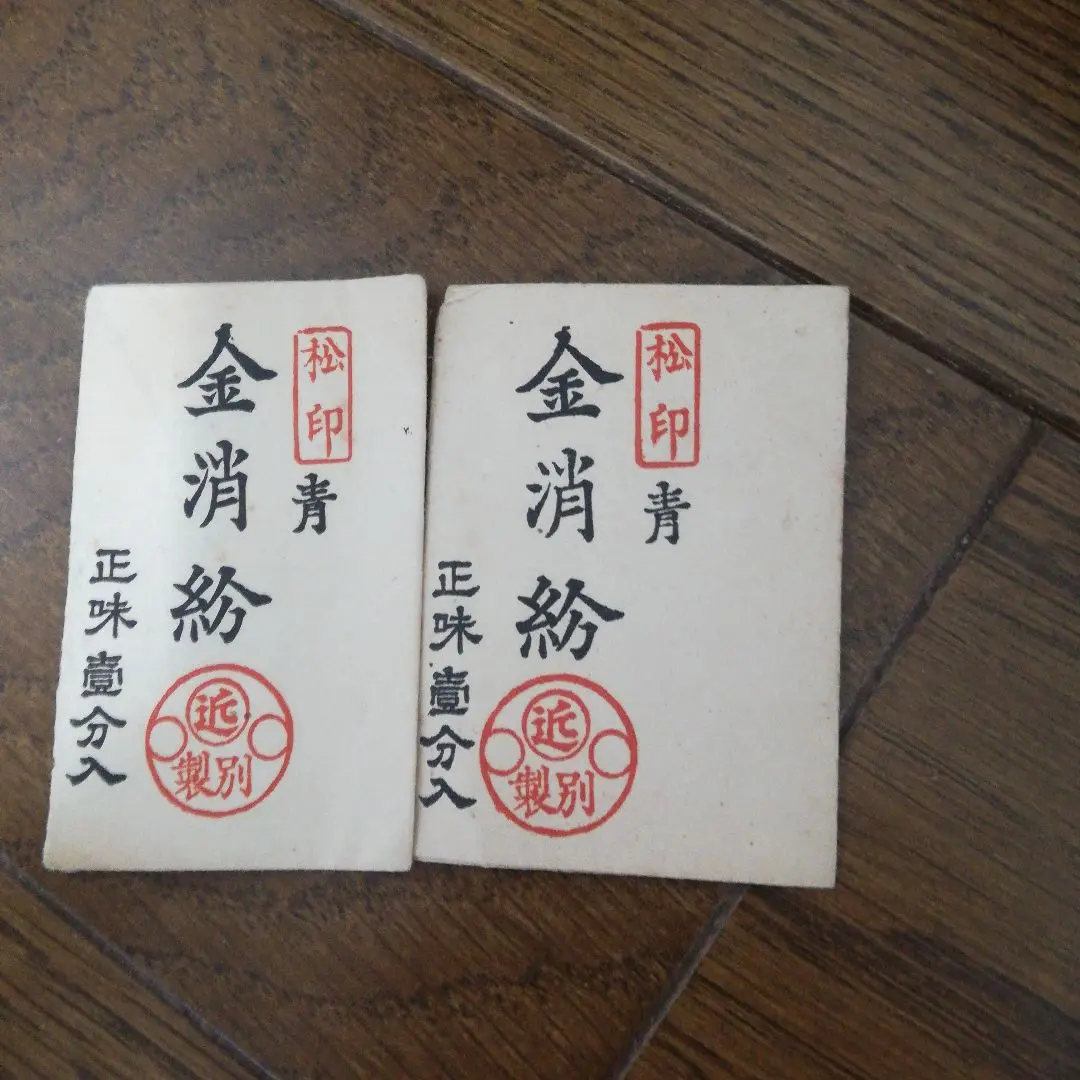 松印
青
金消紛
近
別製
正味壹分入
松印
青
金消紛
近
別製
正味壹分入